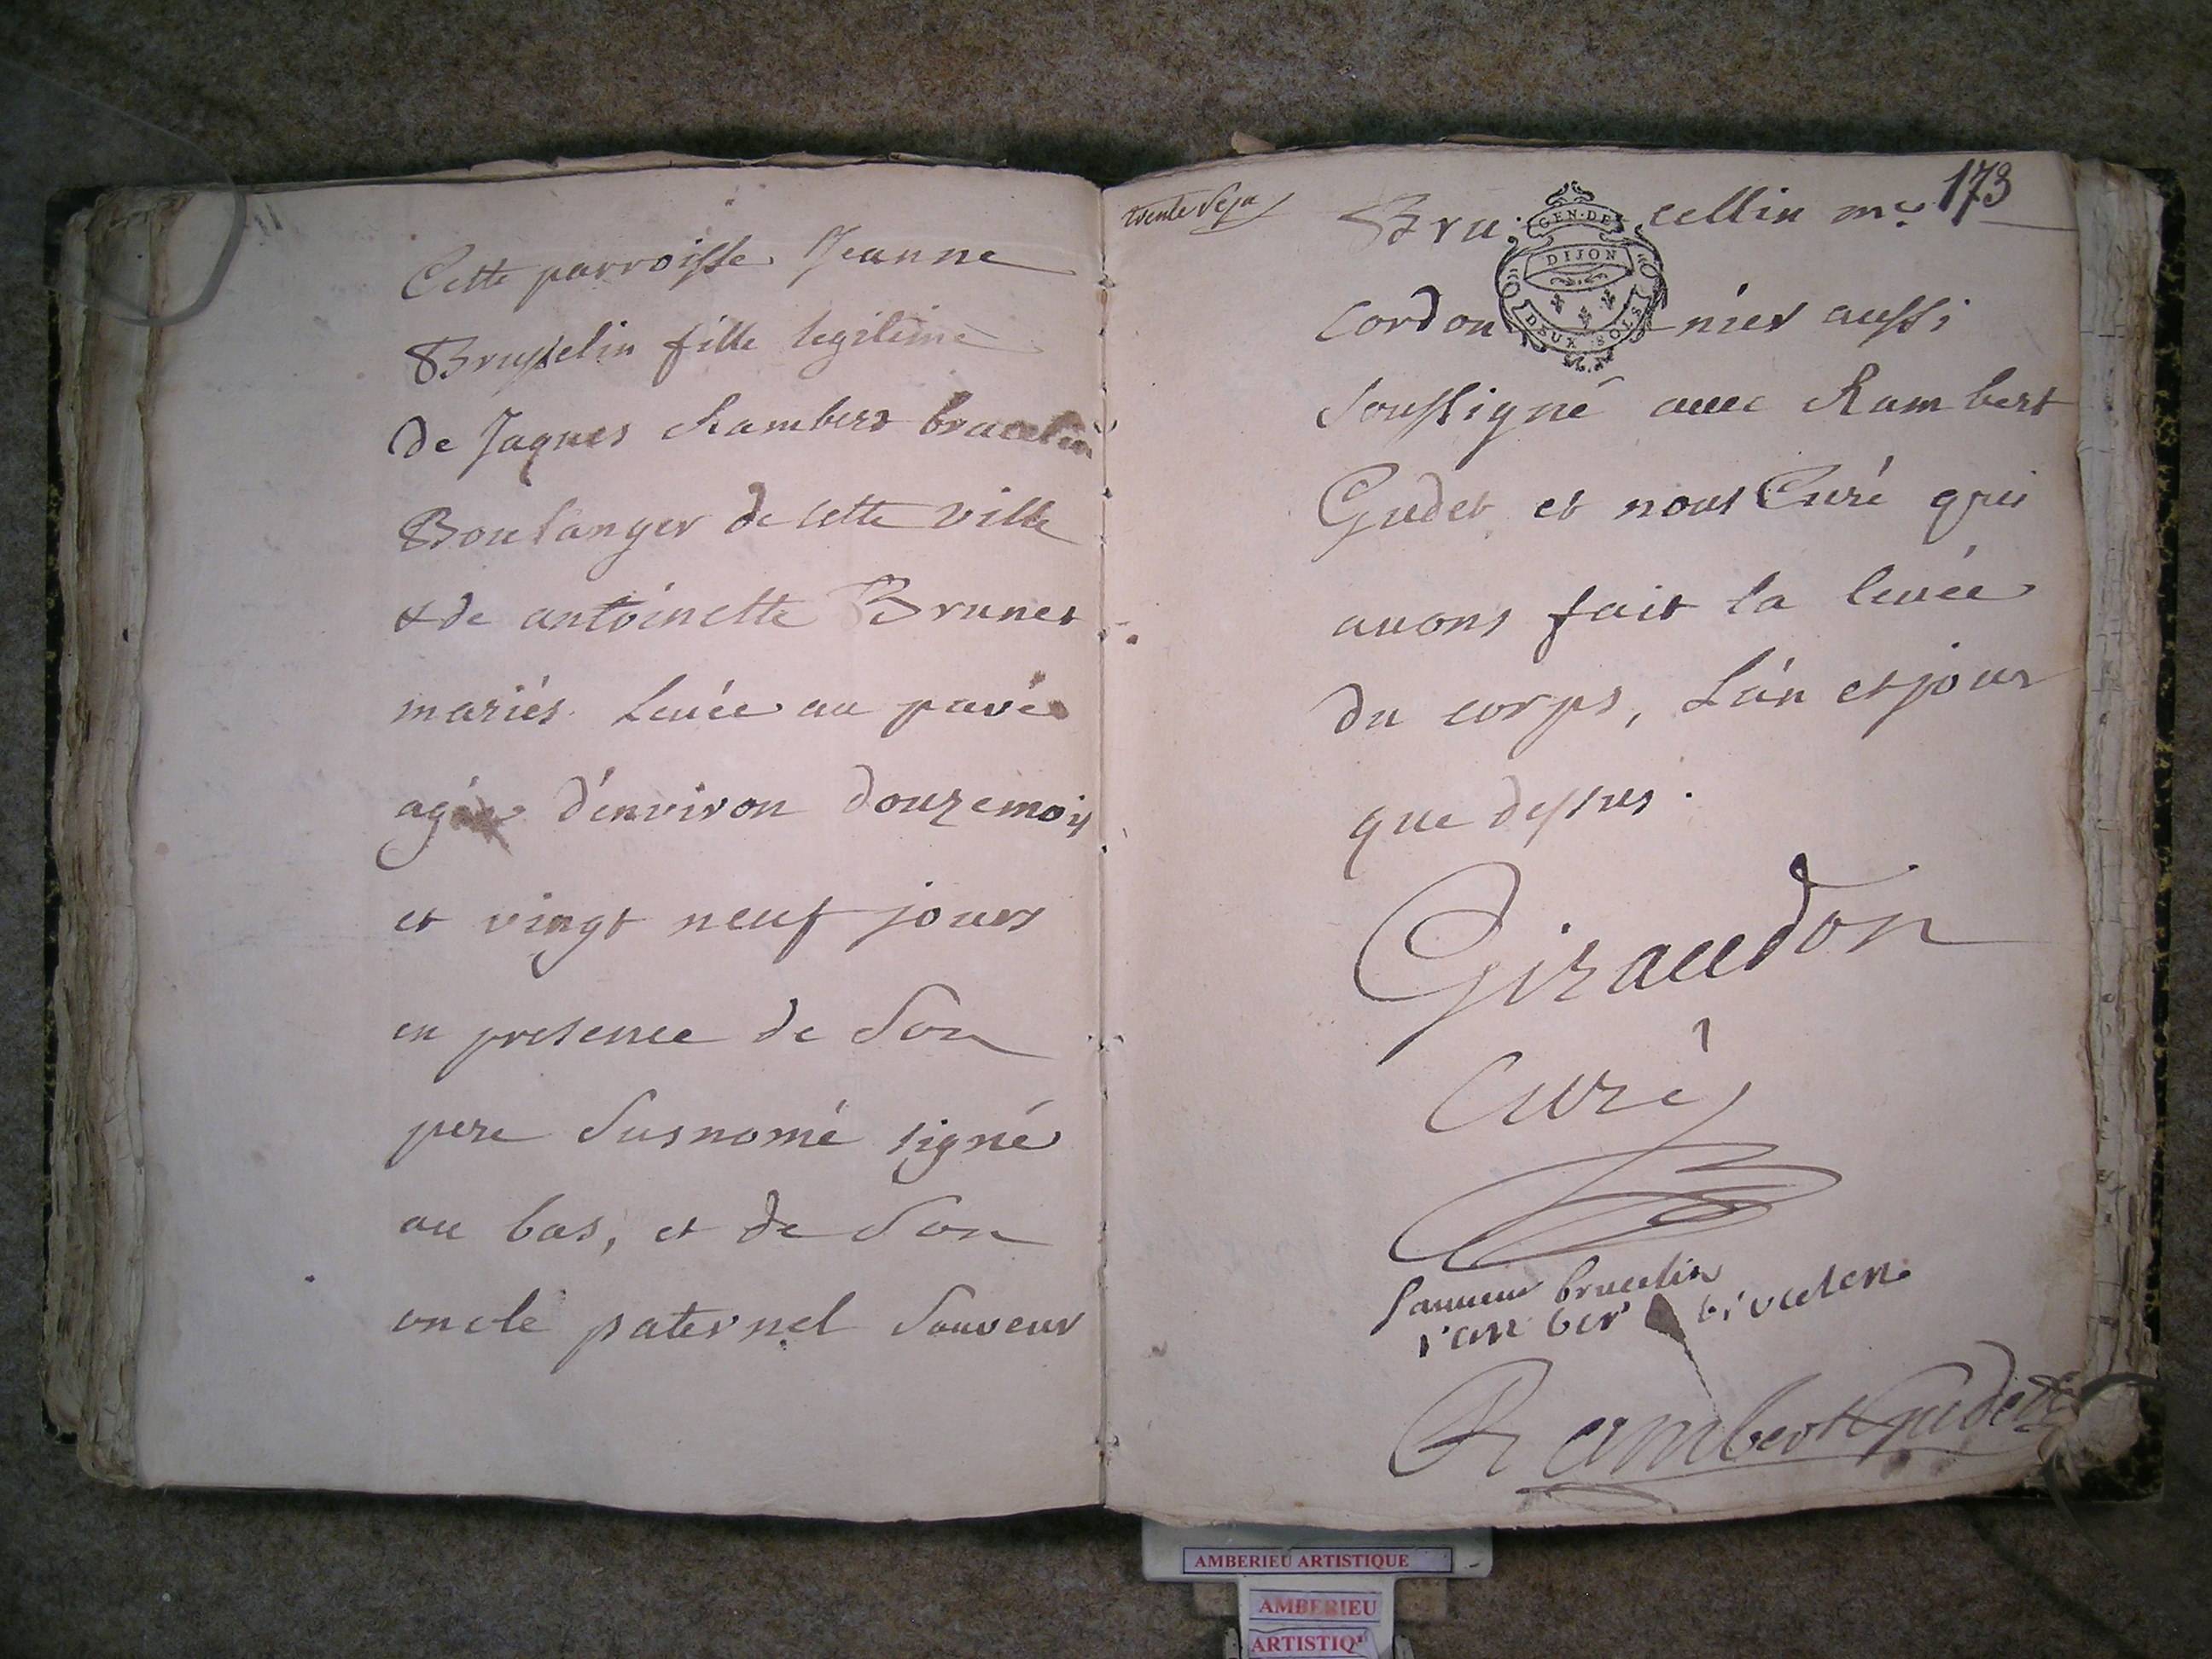 Cette parroisse Jeanne
Brusselin fille legitime
de Jaques Rambert brucelin
Boulanger de cette ville
& de antoinette Brunet
mariés Levée au pavé
agée d'environ douze mois
et vingt neuf jours
en presence de Son
pere Susnomé signé
au bas, et de Son
oncle paternel Sauveur
trente Sept
173
Bru cellin me
GEN·DE
DIJON
DEUX SOLS
Cordon nier aussi
Soussigné avec Rambert
Gudet et nous Curé qui
avons fait la levée
du corps, L'an et jour
que dessus.
Giraudon
Curé
Sauveur brucelin
ranber brucelen
Rambert Gudet
AMBERIEU ARTISTIQUE
AMBERIEU
ARTISTIQ